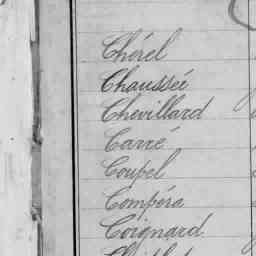 Chérel
Chaussée
Chevillard
Carré
Coupel
Compéra
Coignard